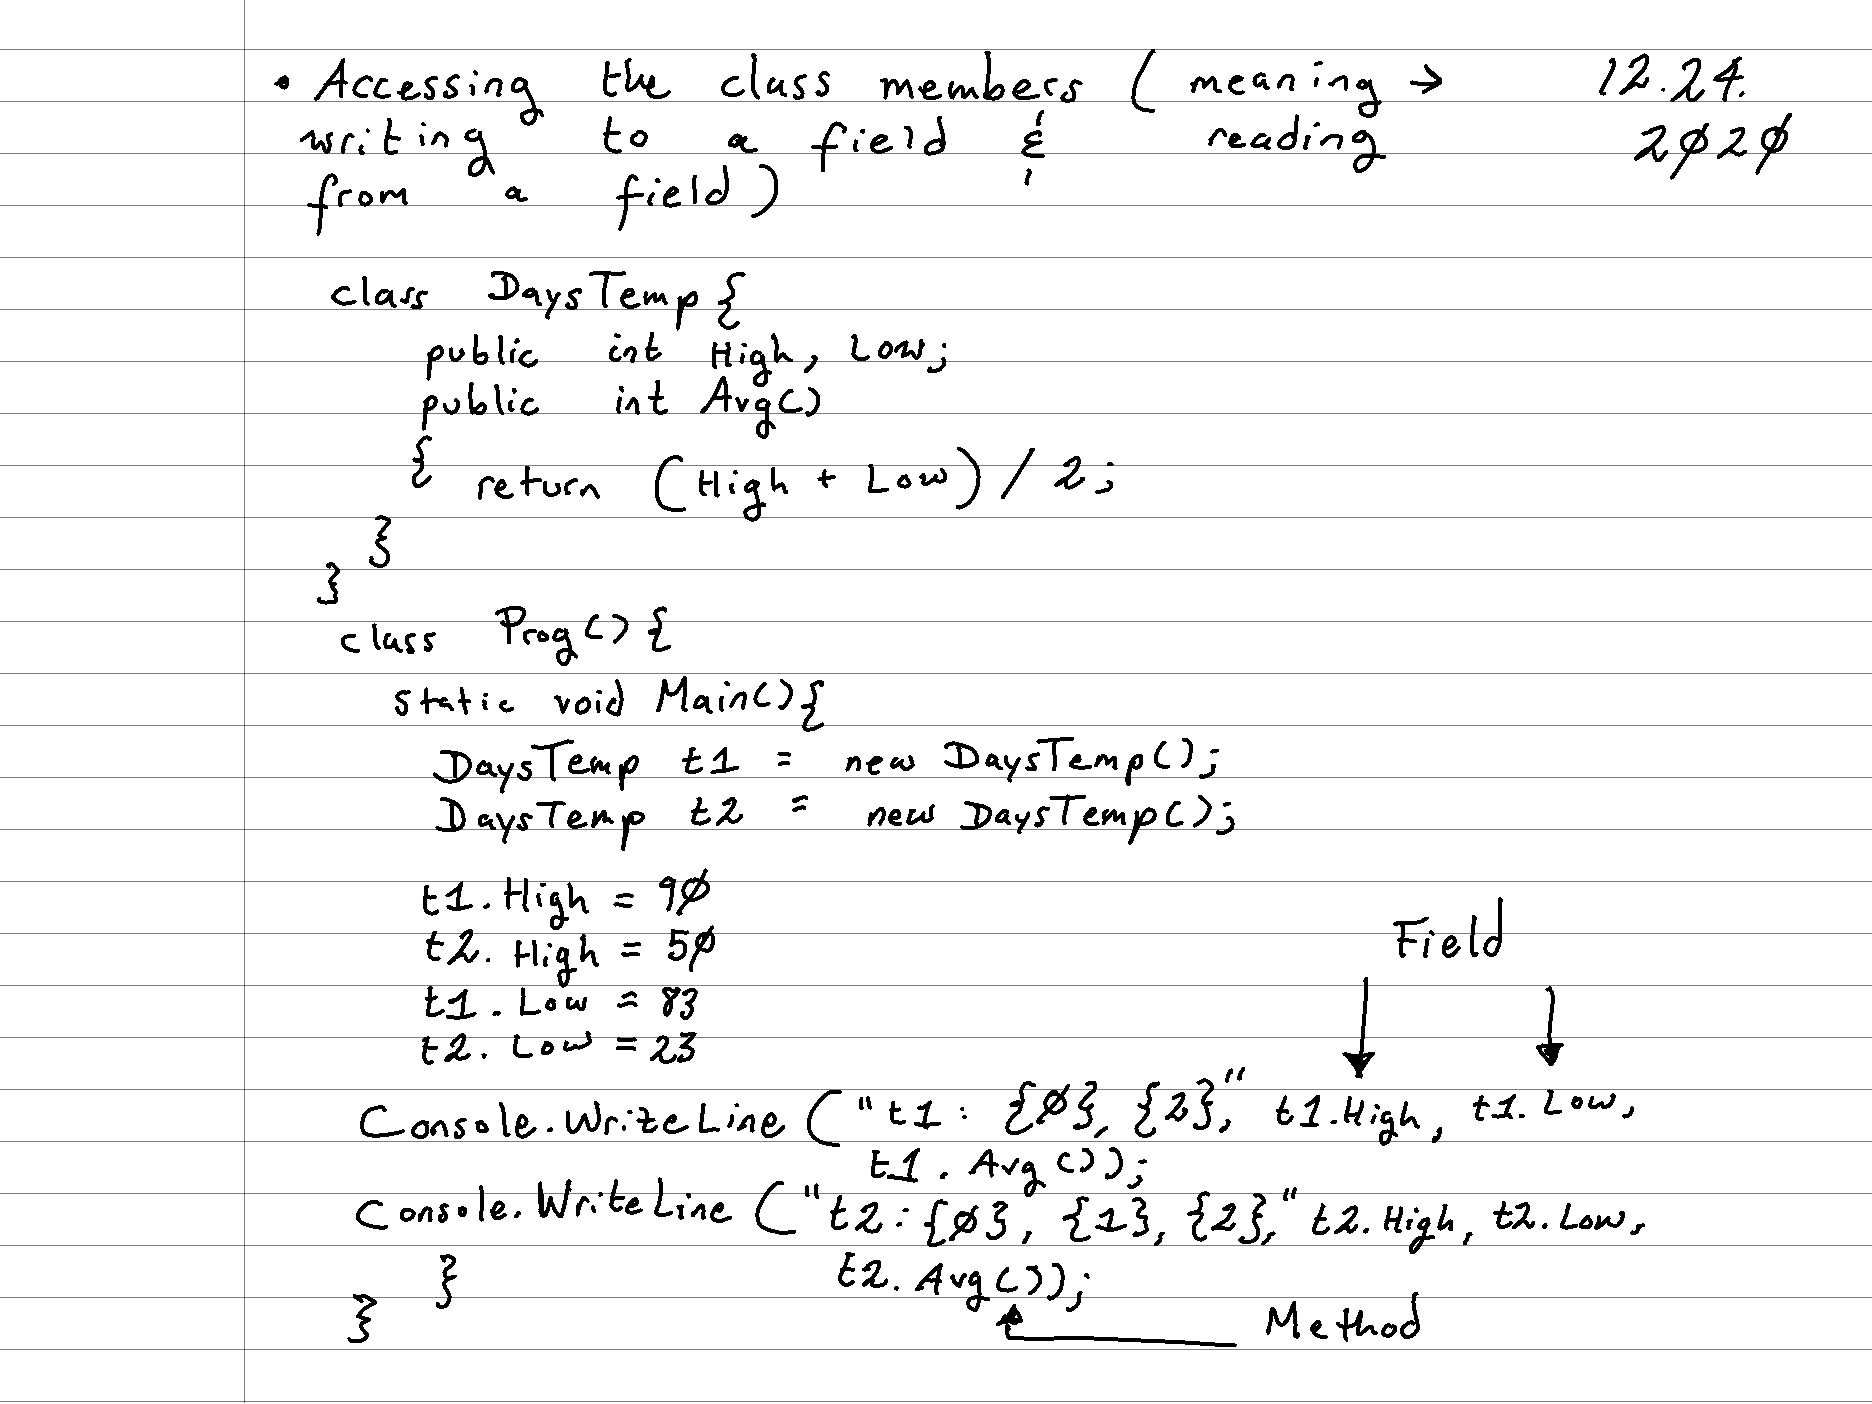 • Accessing the class members (meaning → 12.24.
writing to a field & reading 2020
from a field)
class DaysTemp {
public int High, Low;
public int Avg()
{ return (High + Low) / 2;
}
}
class Prog() {
static void Main(){
DaysTemp t1 = new DaysTemp();
DaysTemp t2 = new DaysTemp();
t1.High = 90
t2.High = 50
t1.Low = 83
t2.Low = 23
Field
Console.WriteLine ("t1: {0}, {2}," t1.High, t1.Low,
t1.Avg());
Console.WriteLine ("t2: {0}, {1}, {2}," t2.High, t2.Low,
} t2.Avg());
} Method